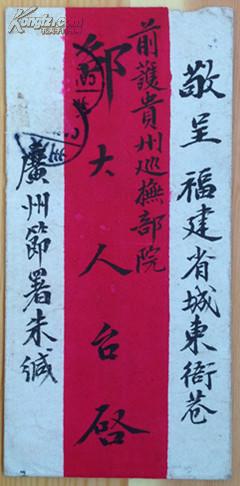 敬呈福建省城東衙巷
前護貴州巡撫部院
鄧大人台啓
廣州節署朱緘